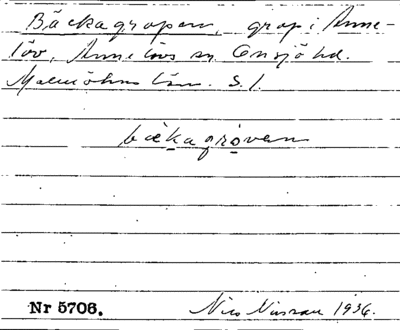 Bäckagropen, grop i Anne-
löv, Annelövs sn Onsjö hd.
Malmöhus län. S. 1.
bækagroven
Nr 5706. Nils 1936.